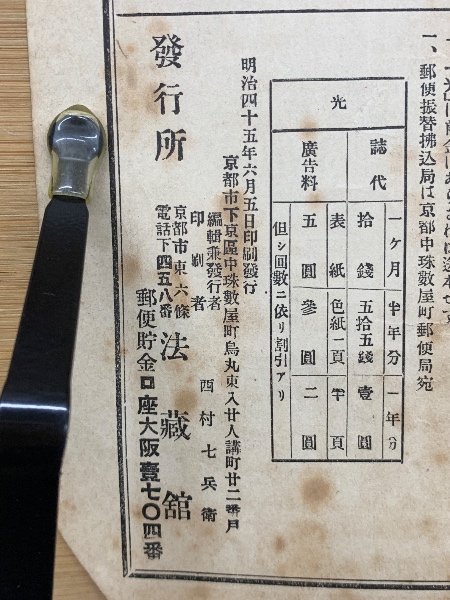 一、郵便振替拂込局は京都中珠數屋町郵便局宛
光
誌代
一ケ月 半年分 一年分
拾錢 五拾五錢 壹圓
廣告料
表紙 色紙一頁 半頁
五圓 參圓 二圓
但シ回數ニ依リ割引アリ
明治四十五年六月五日印刷發行
京都市下京區中珠數屋町烏丸東入廿人講町廿二番戸
編輯兼發行者
印刷者
西村七兵衞
發行所
京都市東六條
電話下四五八番
法藏館
郵便貯金口座大阪壹七〇四番